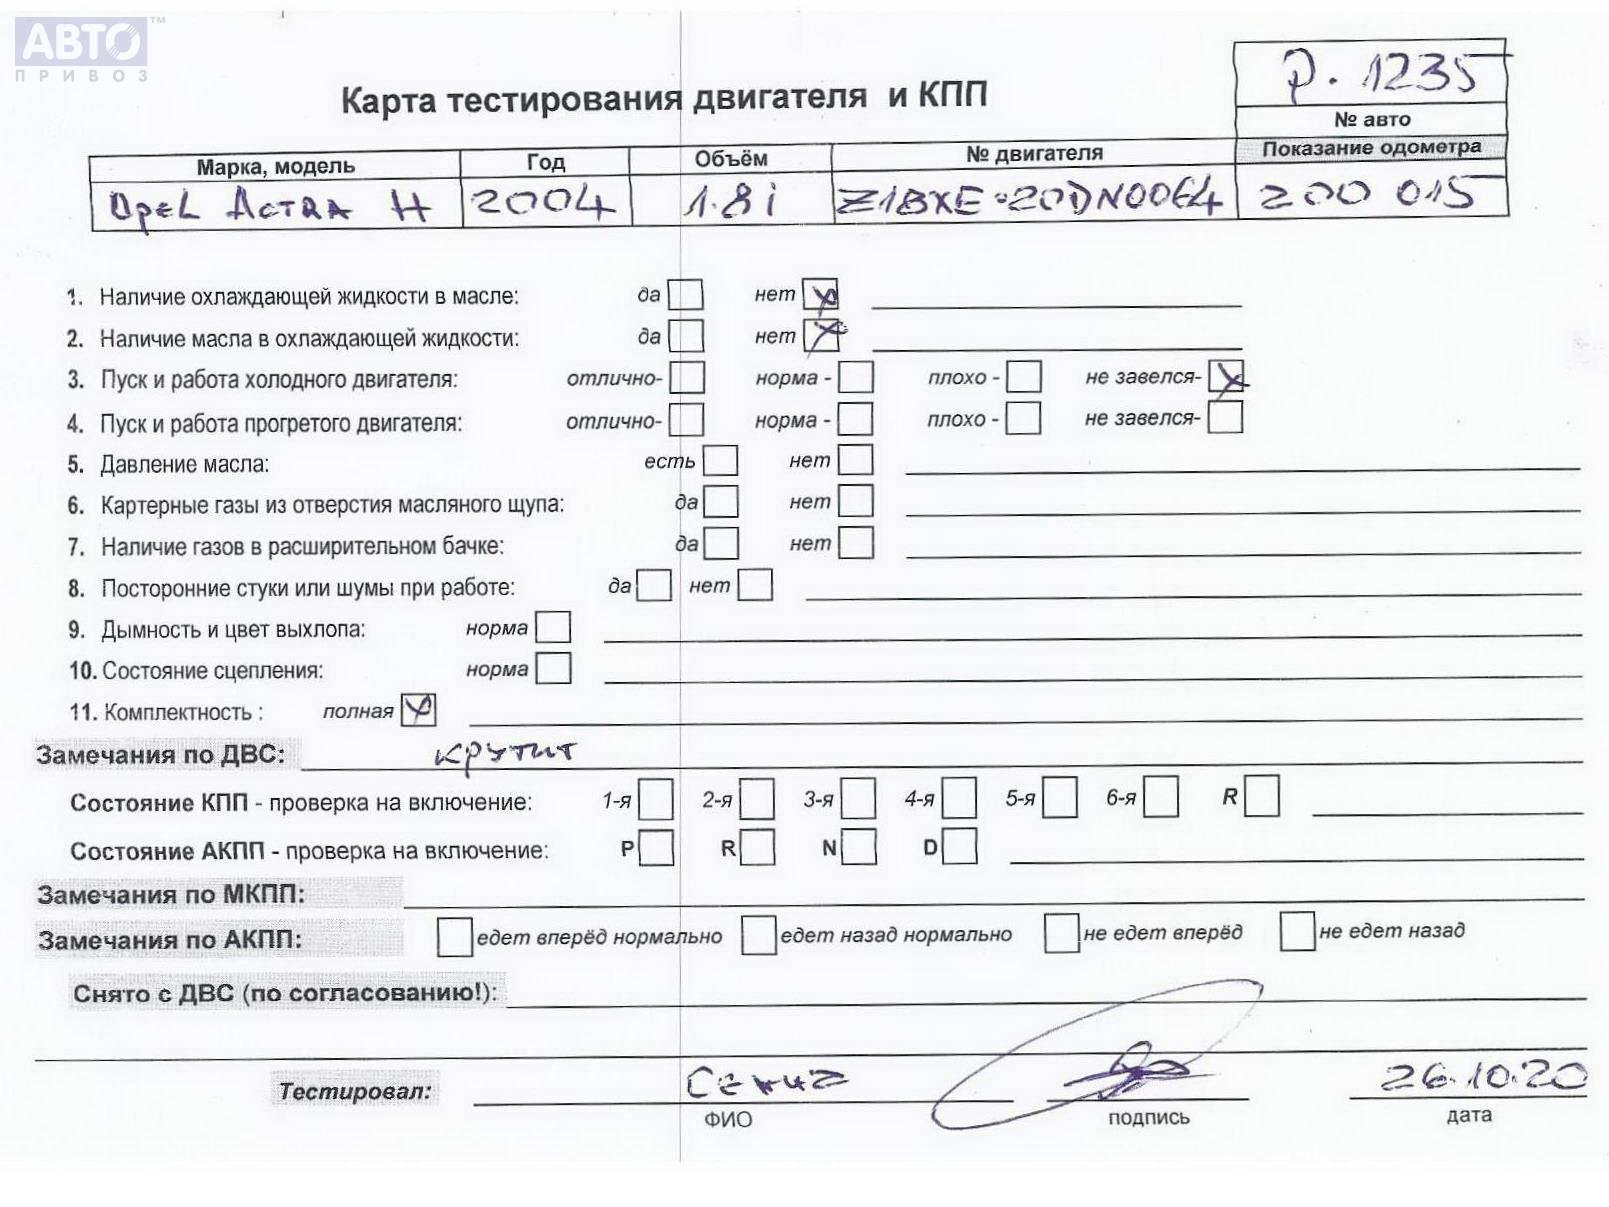 АВТО™
ПРИВОЗ
Р. 1235
Карта тестирования двигателя и КПП
№ авто
Марка, модель Год Объём № двигателя Показание одометра
Opel Астра H 2004 1.8i Z18XE-20DN0064 200 015
1. Наличие охлаждающей жидкости в масле: да нет
2. Наличие масла в охлаждающей жидкости: да нет
3. Пуск и работа холодного двигателя: отлично- норма - плохо - не завелся-
4. Пуск и работа прогретого двигателя: отлично- норма - плохо - не завелся-
5. Давление масла: есть нет
6. Картерные газы из отверстия масляного щупа: да нет
7. Наличие газов в расширительном бачке: да нет
8. Посторонние стуки или шумы при работе: да нет
9. Дымность и цвет выхлопа: норма
10. Состояние сцепления: норма
11. Комплектность : полная
Замечания по ДВС: крутит
Состояние КПП - проверка на включение: 1-я 2-я 3-я 4-я 5-я 6-я R
Состояние АКПП - проверка на включение: P R N D
Замечания по МКПП:
Замечания по АКПП: едет вперёд нормально едет назад нормально не едет вперёд не едет назад
Снято с ДВС (по согласованию!):
Тестировал: 26.10.20
ФИО подпись дата